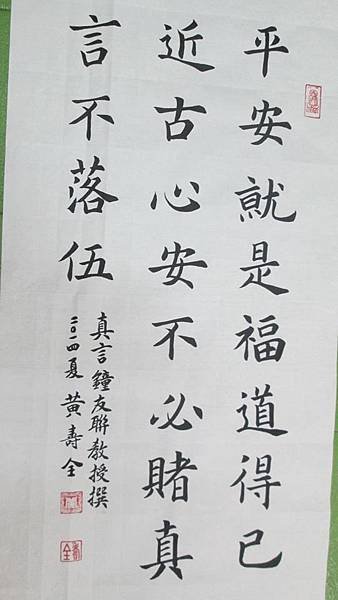 平安就是福道得已
近古心安不必賭真
言不落伍
真言鐘友聯教授撰
二〇一四夏 黃壽全